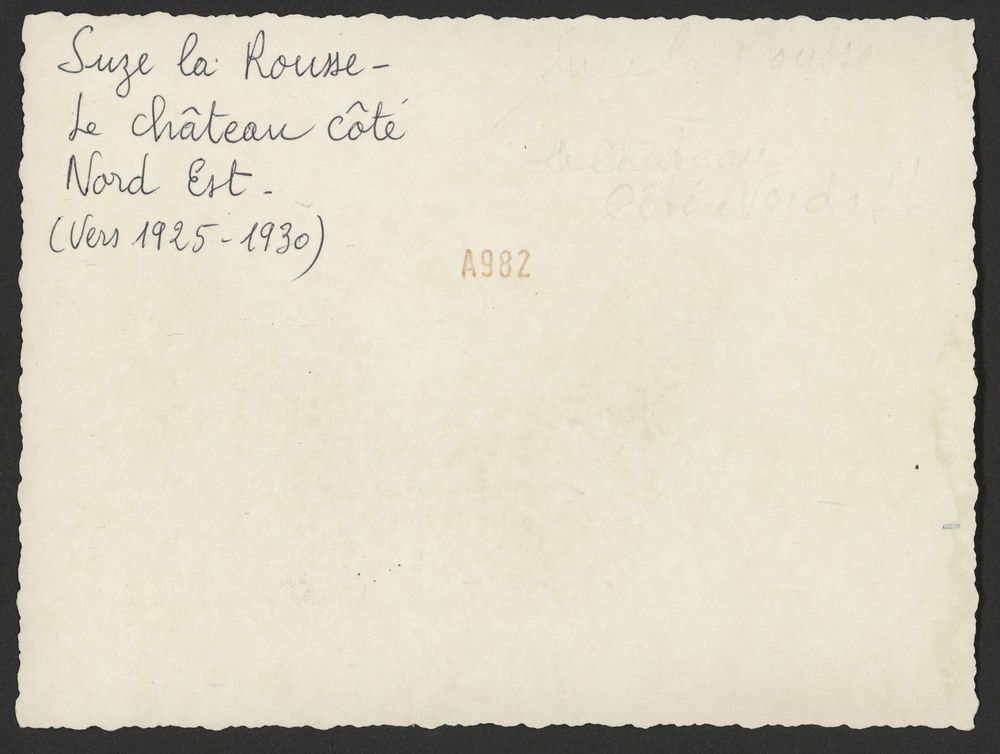 Suze la Rousse -
Le château côté
Nord Est -
(Vers 1925 - 1930)
A982
la Rousse
Le Château
Côté Nord